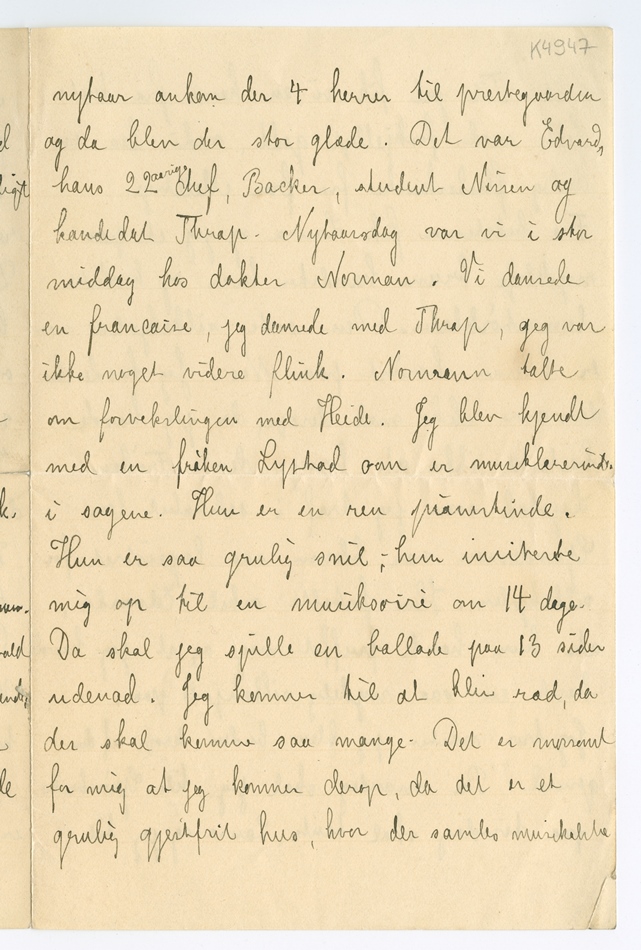 K4947
nytaar ankom der 4 herrer til prestegaarden
og da blev der stor glæde. Det var Edvard,
hans 22aarige Chef, Backer, student Nissen og
kandidat Thrap. Nytaarsdag var vi i stor
middag hos dokter Norman. Vi dansede
en francaise, jeg dansede med Thrap, jeg var
ikke noget videre flink. Normann talte
om forvekslingen med Heide. Jeg blev kjendt
med en frøken Lystad som er musiklærerinde
i sagene. Hun er en ren pianistinde.
Hun er saa grulig snil; hun inviterte
mig op til en musiksoiré om 14 dage.
Da skal jeg spille en ballade paa 13 sider
udenad. Jeg kommer til at bliv ræd, da
der skal komme saa mange. Det er morsomt
for mig at jeg kommer derop, da det er et
grulig gjestfrit hus, hvor der samles musikalske